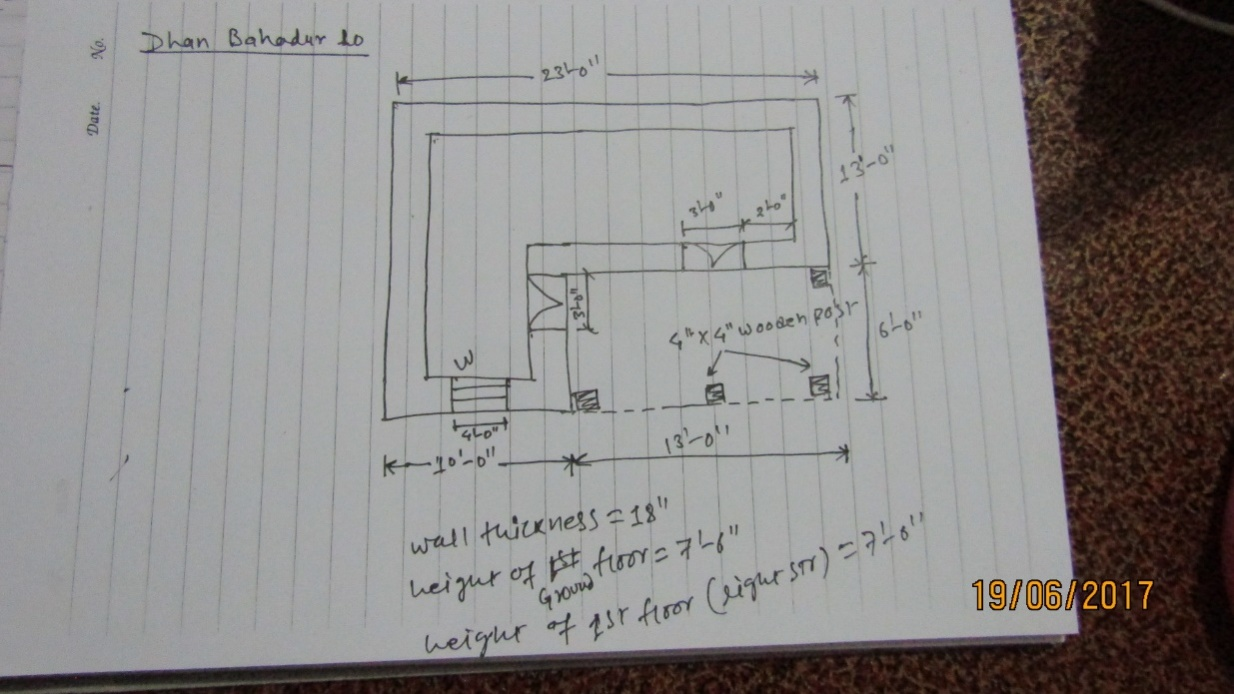 No.
Date.
Dhan Bahadur
23'-0"
13'-0"
3'-0"
2'-0"
3'-0"
4"x4" wooden post
6'-0"
W
4'-0"
10'-0"
13'-0"
wall thickness = 18"
height of Ground floor = 7'-6"
height of 1st floor (light str) = 7'-0"
19/06/2017